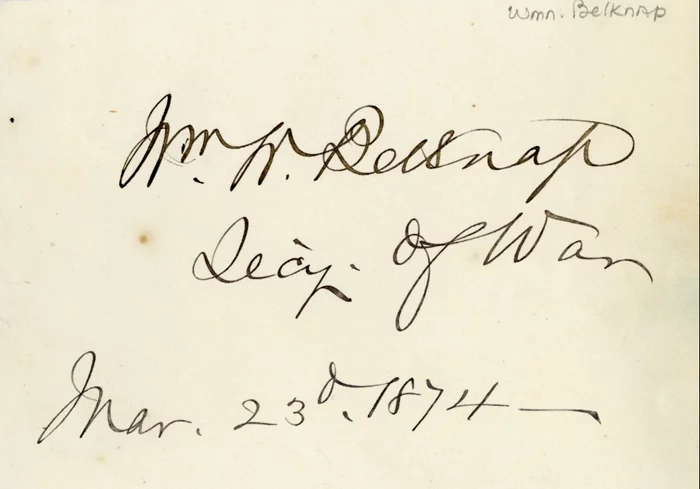 Wmn. Belknap
Wm. W. Belknap
Secy. of War
Mar. 23d. 1874 —